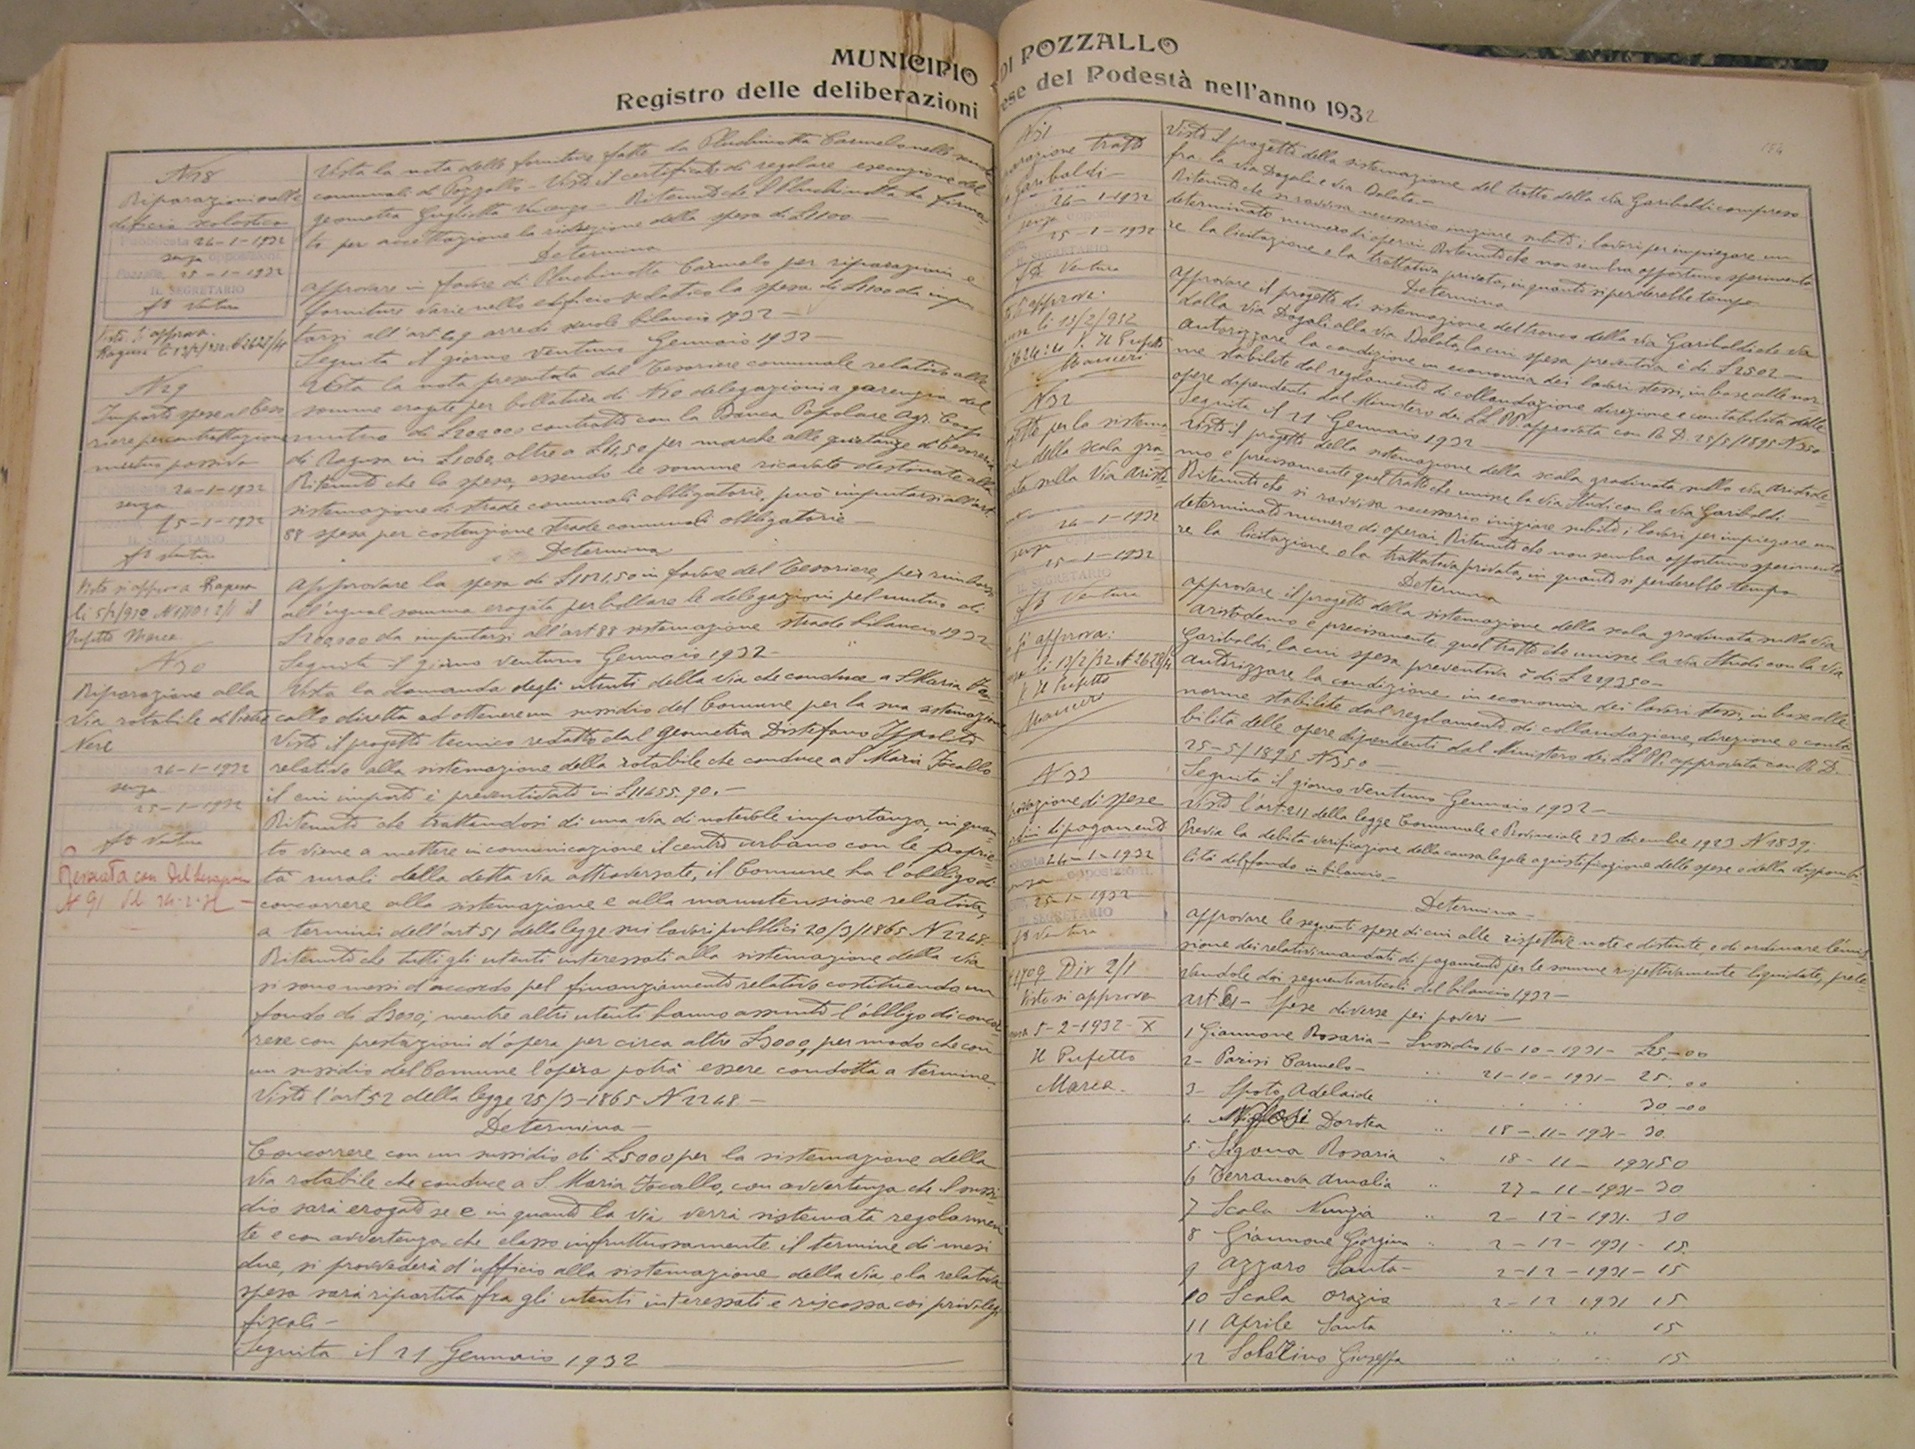 MUNICIPIO DI POZZALLO
Registro delle deliberazioni prese del Podestà nell'anno 1932
N 28
Riparazioni alle
edificio scolastico
Pubblicata 26-1-1932
senza opposizioni
Pozzallo, 25-1-1932
IL SEGRETARIO
Ventura
Visto si approva
Ragusa
Vista la nota delle forniture fatte da Pluchinotta Carmelo nelle scuole
comunali di Pozzallo - Visto il certificato di regolare esecuzione del
geometra Guglielmo Vincenzo - Ritenuto che il Pluchinotta ha firma
to per accettazione la riduzione della spesa di £1100 -
Determina
approvare in favore di Pluchinotta Carmelo per riparazioni e
forniture varie nello edificio scolastico la spesa di £1100 da impu
tarsi all'art. 69 arredi scuole bilancio 1932 -
Seguita il giorno ventuno Gennaio 1932 -
N 29
Importo spese al Teso
riere per contrattazione
mutuo passivo
26-1-1932
senza
25-1-1932
IL SEGRETARIO
Ventura
Visto si approva Ragusa
Prefetto Marca
Vista la nota presentata dal Tesoriere comunale relativa alle
somme erogate per bollatura di N 10 delegazioni a garenzia del
mutuo di £200.000 contratto con la Banca Popolare Agr. Coop
di Ragusa in £1060, oltre a £1,50 per marche alle quietanze di Tesoreria
Ritenuto che la spesa, essendo le somme ricavate destinate alla
sistemazione di strade comunali obbligatorie, può imputarsi all'art.
88 spesa per costruzione strade comunali obbligatorie -
Determina
Approvare la spesa di in favore del Tesoriere, per rimborso
all'ugual somma erogata per bollare le delegazioni pel mutuo di
£200.000 da imputarsi all'art 88 sistemazione strade bilancio 1932
Seguita il giorno ventuno Gennaio 1932 -
N 30
Riparazione alla
via rotabile di Pietre
Nere
26-1-1932
senza
25-1-1932
Ventura
Revocata con Deliberazione
N 91 del 24-2-32 -
Vista la domanda degli utenti della via che conduce a S Maria Fo
callo diretta ad ottenere un sussidio del Comune per la sua sistemazione
Visto il progetto tecnico redatto dal geometra Distefano Ippolito
relativo alla sistemazione della rotabile che conduce a S Maria Focallo
il cui importo è preventivato in £11655.90. -
Ritenuto che trattandosi di una via di notevole importanza, in quan
to viene a mettere in comunicazione il centro urbano con le proprie
tà rurali della detta via attraversate, il Comune ha l'obbligo di
concorrere alla sistemazione e alla manutensione relativa,
a termini dell'art 51 della legge sui lavori pubblici 20/3/1865 N 2248.
Ritenuto che tutti gli utenti interessati alla sistemazione della via
si sono messi d'accordo pel finanziamento relativo costituendo un
fondo di £3000; mentre altri utenti hanno assunto l'obbligo di concor
rere con prestazioni d'opera per circa altre £3000, per modo che con
un sussidio del Comune l'opera potrà essere condotta a termine
Visto l'art 52 della legge 25/3-1865 N 2248 -
Determina -
Concorrere con un sussidio di £5000 per la sistemazione della
via rotabile che conduce a S. Maria Focallo, con avvertenza che il sussi
dio sarà erogato se e in quanto la via verrà sistemata regolarmen
te e con avvertenza che elasso infruttuosamente il termine di mesi
due, si provvederà d'ufficio alla sistemazione della via e la relativa
spesa sarà ripartita fra gli utenti interessati e riscossa coi privilegi
fiscali -
Seguita il 21 Gennaio 1932
N 31
tratto
Garibaldi -
26-1-1932
senza
25-1-1932
IL SEGRETARIO
Ventura
approva:
li 13/2/932
Il Prefetto
Mancieri
Visto il progetto della sistemazione del tratto della via Garibaldi compreso
fra la via Dogali e via Dalata. -
Ritenuto che si ravvisa necessario iniziare subito i lavori per impiegare un
determinato numero di operai. Ritenuto che non sembra opportuno sperimenta
re la licitazione e la trattativa privata, in quanto si perderebbe tempo
Determina
Approvare il progetto di sistemazione del tronco della via Garibaldi che va
dalla via Dogali alla via Dalata, la cui spesa preventiva è di £2502 -
Autorizzare la conduzione in economia dei lavori stessi, in base alle nor
me stabilite dal regolamento di collaudazione direzione e contabilità delle
opere dipendenti dal Ministero dei LL.PP. approvata con R. D. 25/5/1895 N 350
Seguita il 21 Gennaio 1932 -
N 32
per la sistema
della scala gra
sulla Via Aristo
26-1-1932
senza
25-1-1932
IL SEGRETARIO
Ventura
si approva:
li 13/2/32
Il Prefetto
Mancieri
Visto il progetto della sistemazione della scala gradinata sulla via Aristode
mo e precisamente quel tratto che unisce la via Studi con la via Garibaldi -
Ritenuto che si ravvisa necessario iniziare subito i lavori per impiegare un
determinato numero di operai. Ritenuto che non sembra opportuno sperimenta
re la licitazione e la trattativa privata, in quanto si perderebbe tempo
Determina
Approvare il progetto della sistemazione della scala gradinata sulla via
Aristodemo e precisamente quel tratto che unisce la via Studi con la via
Garibaldi, la cui spesa preventiva è di £ 2293,50 -
Autorizzare la conduzione in economia dei lavori stessi, in base alle
norme stabilite dal regolamento di collaudazione, direzione e conta
bilità delle opere dipendenti dal Ministero dei LL.PP. approvata con R. D.
25-5/1895 N 350 -
Seguita il giorno ventuno Gennaio 1932 -
N 33
di spese
di pagamento
26-1-1932
senza opposizioni
25-1-1932
IL SEGRETARIO
Ventura
1709 Div 2/1
Visto si approva
5-2-1932-X
Il Prefetto
Marca -
Visto l'art. 211 della legge Comunale e Provinciale 23 dicembre 1923 N 2839.
Previa la debita verificazione della causa legale a giustificazione delle spese e della disponibi
lità del fondo in bilancio -
Determina -
Approvare le seguenti spese di cui alle rispettive note e distinte, e di ordinare l'emis
sione dei relativi mandati di pagamento per le somme rispettivamente liquidate, prele
vandole dai seguenti articoli del bilancio 1932 -
Art - Spese diverse pei poveri -
1 Giannone Rosaria - Sussidio 16-10-1931- £25.-00
2- Parisi Carmelo - " 21-10-1931- 25.00
3- Spoto Adelaide " " " " 30-00
4. Dorotea " 18-11-1931- 30.
5. Sigona Rosaria " 18-11-1931 50
6 Terranova Amalia " 27-11-1931-30
7 Scala Nunzia " 2-12-1931- 30
8 Giannone Giorgina " 2-12-1931- 15.
9 Azzaro Santa - 2-12-1931-15
10 Scala Orazio 2-12 1931 15
11 Aprile Santa " " " 15
12 Giuseppa " " " 15